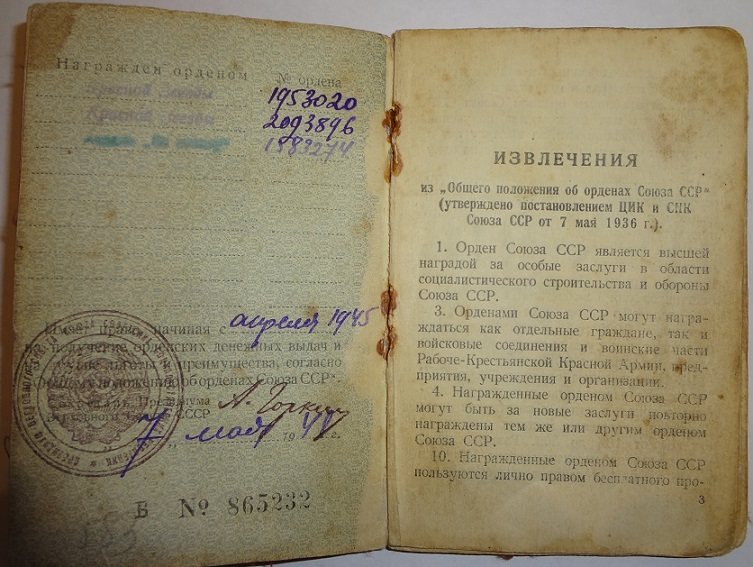 Награжден орденом № ордена
Красной Звезды 1953020
Красной Звезды 2093896
1583274
Имеет право, начиная с апреля 1945
получение орденских денежных выдач и
льготы и преимущества, согласно
положению об орденах Союза ССР".
Президиума
Верховного СССР А. Горкин
7 мая 19 г.
Б № 865232
ИЗВЛЕЧЕНИЯ
из „Общего положения об орденах Союза ССР"
(утверждено постановлением ЦИК и СНК
Союза ССР от 7 мая 1936 г.).
1. Орден Союза ССР является высшей
наградой за особые заслуги в области
социалистического строительства и обороны
Союза ССР.
3. Орденами Союза ССР могут награ-
ждаться как отдельные граждане, так и
войсковые соединения и воинские части
Рабоче-Крестьянской Красной Армии, пред-
приятия, учреждения и организации.
4. Награжденные орденом Союза ССР
могут быть за новые заслуги повторно
награждены тем же или другим орденом
Союза ССР.
10. Награжденные орденом Союза ССР
пользуются лично правом бесплатного про-
3